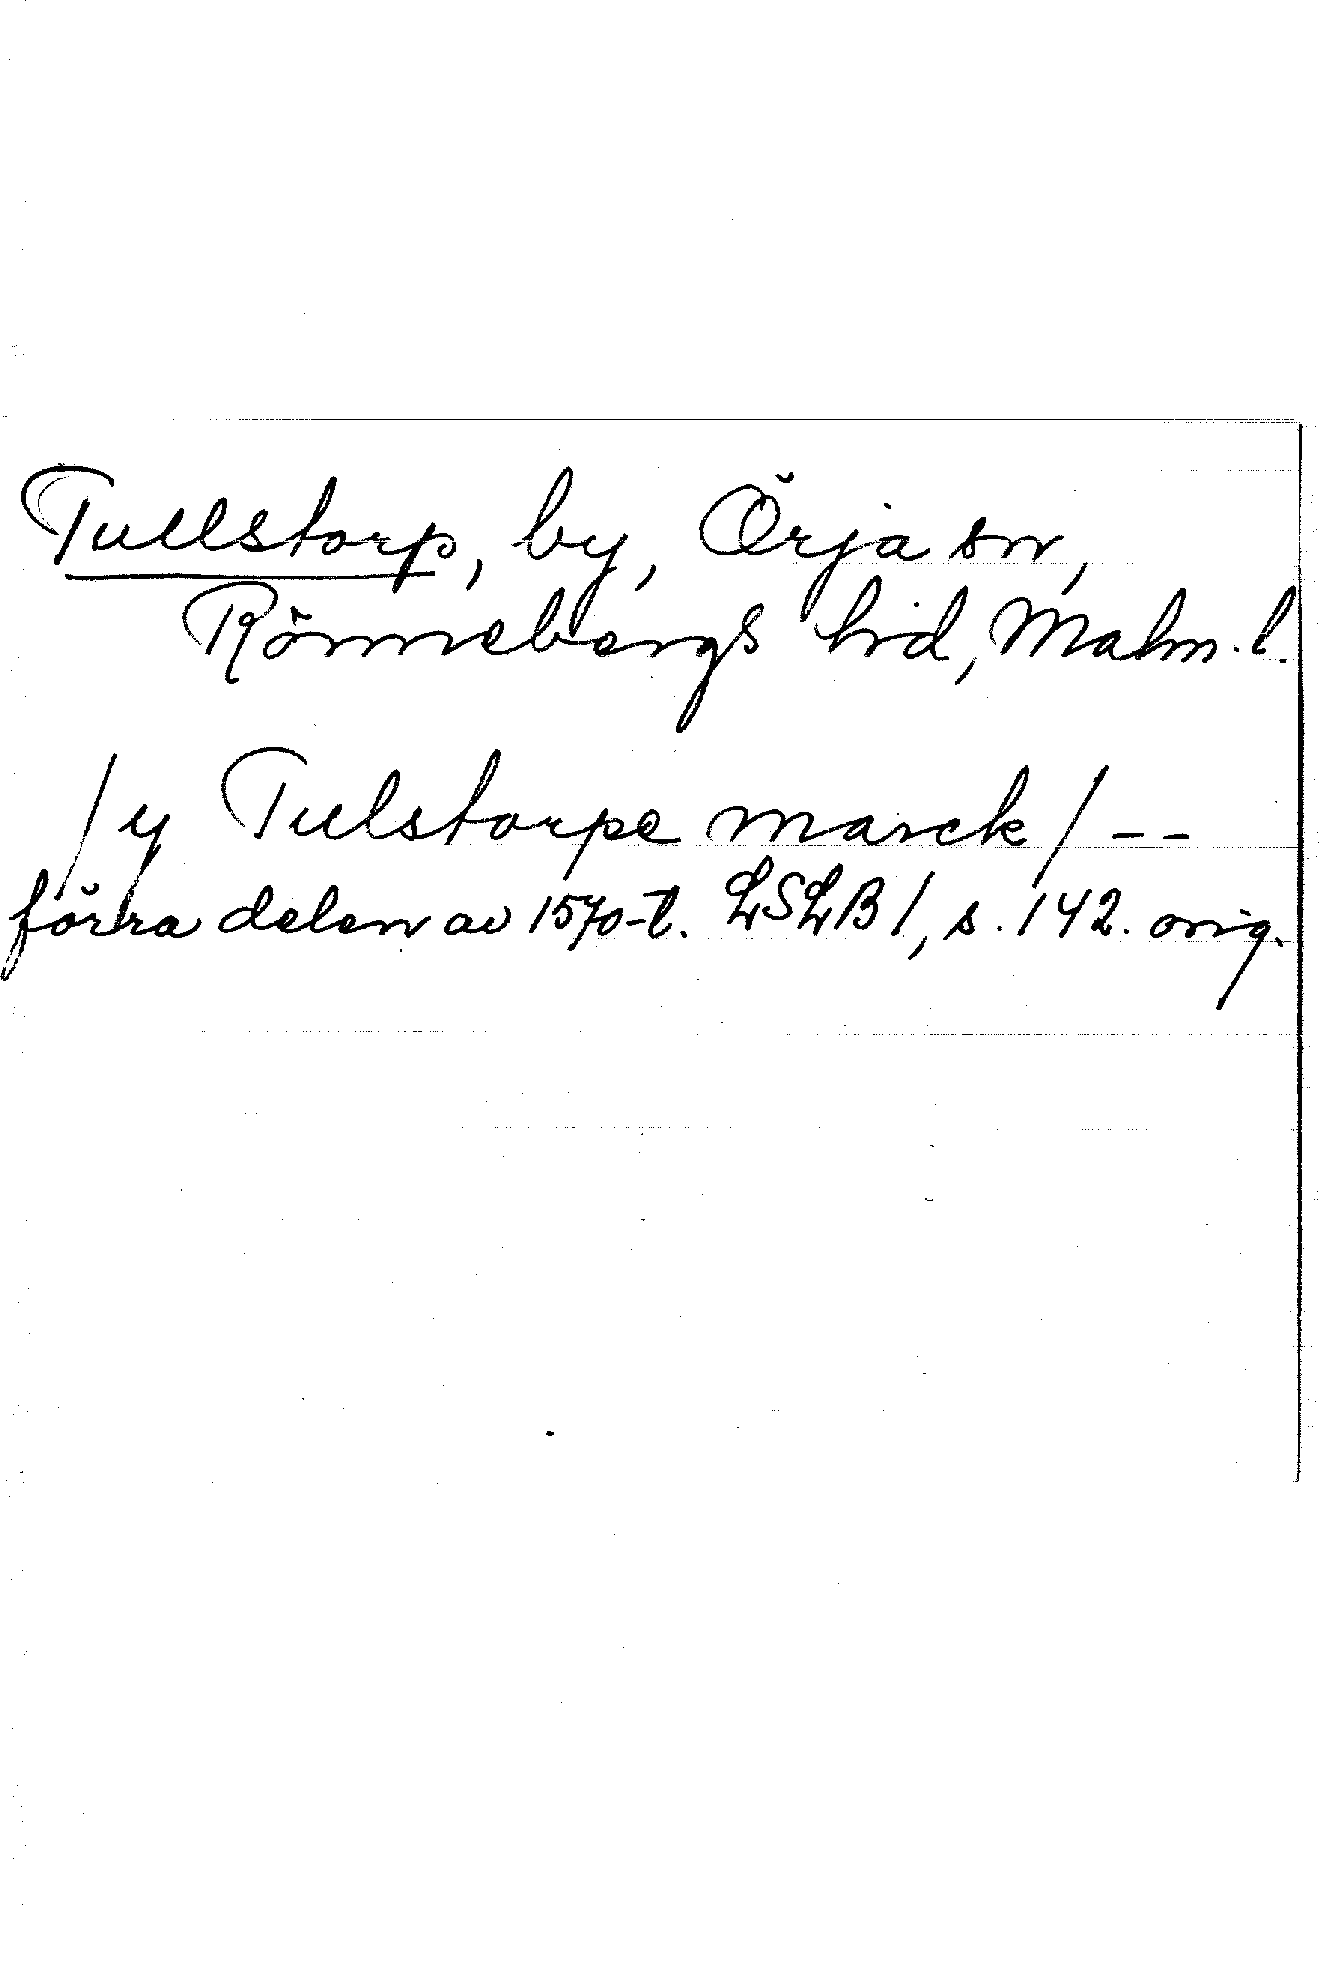 Tullstorp, by, Örja sn,
Rönnebergs hd, Malm. l.
/y Tulstorpe marck/ --
förra delen av 1570-t. LSLB 1, s. 142. orig.